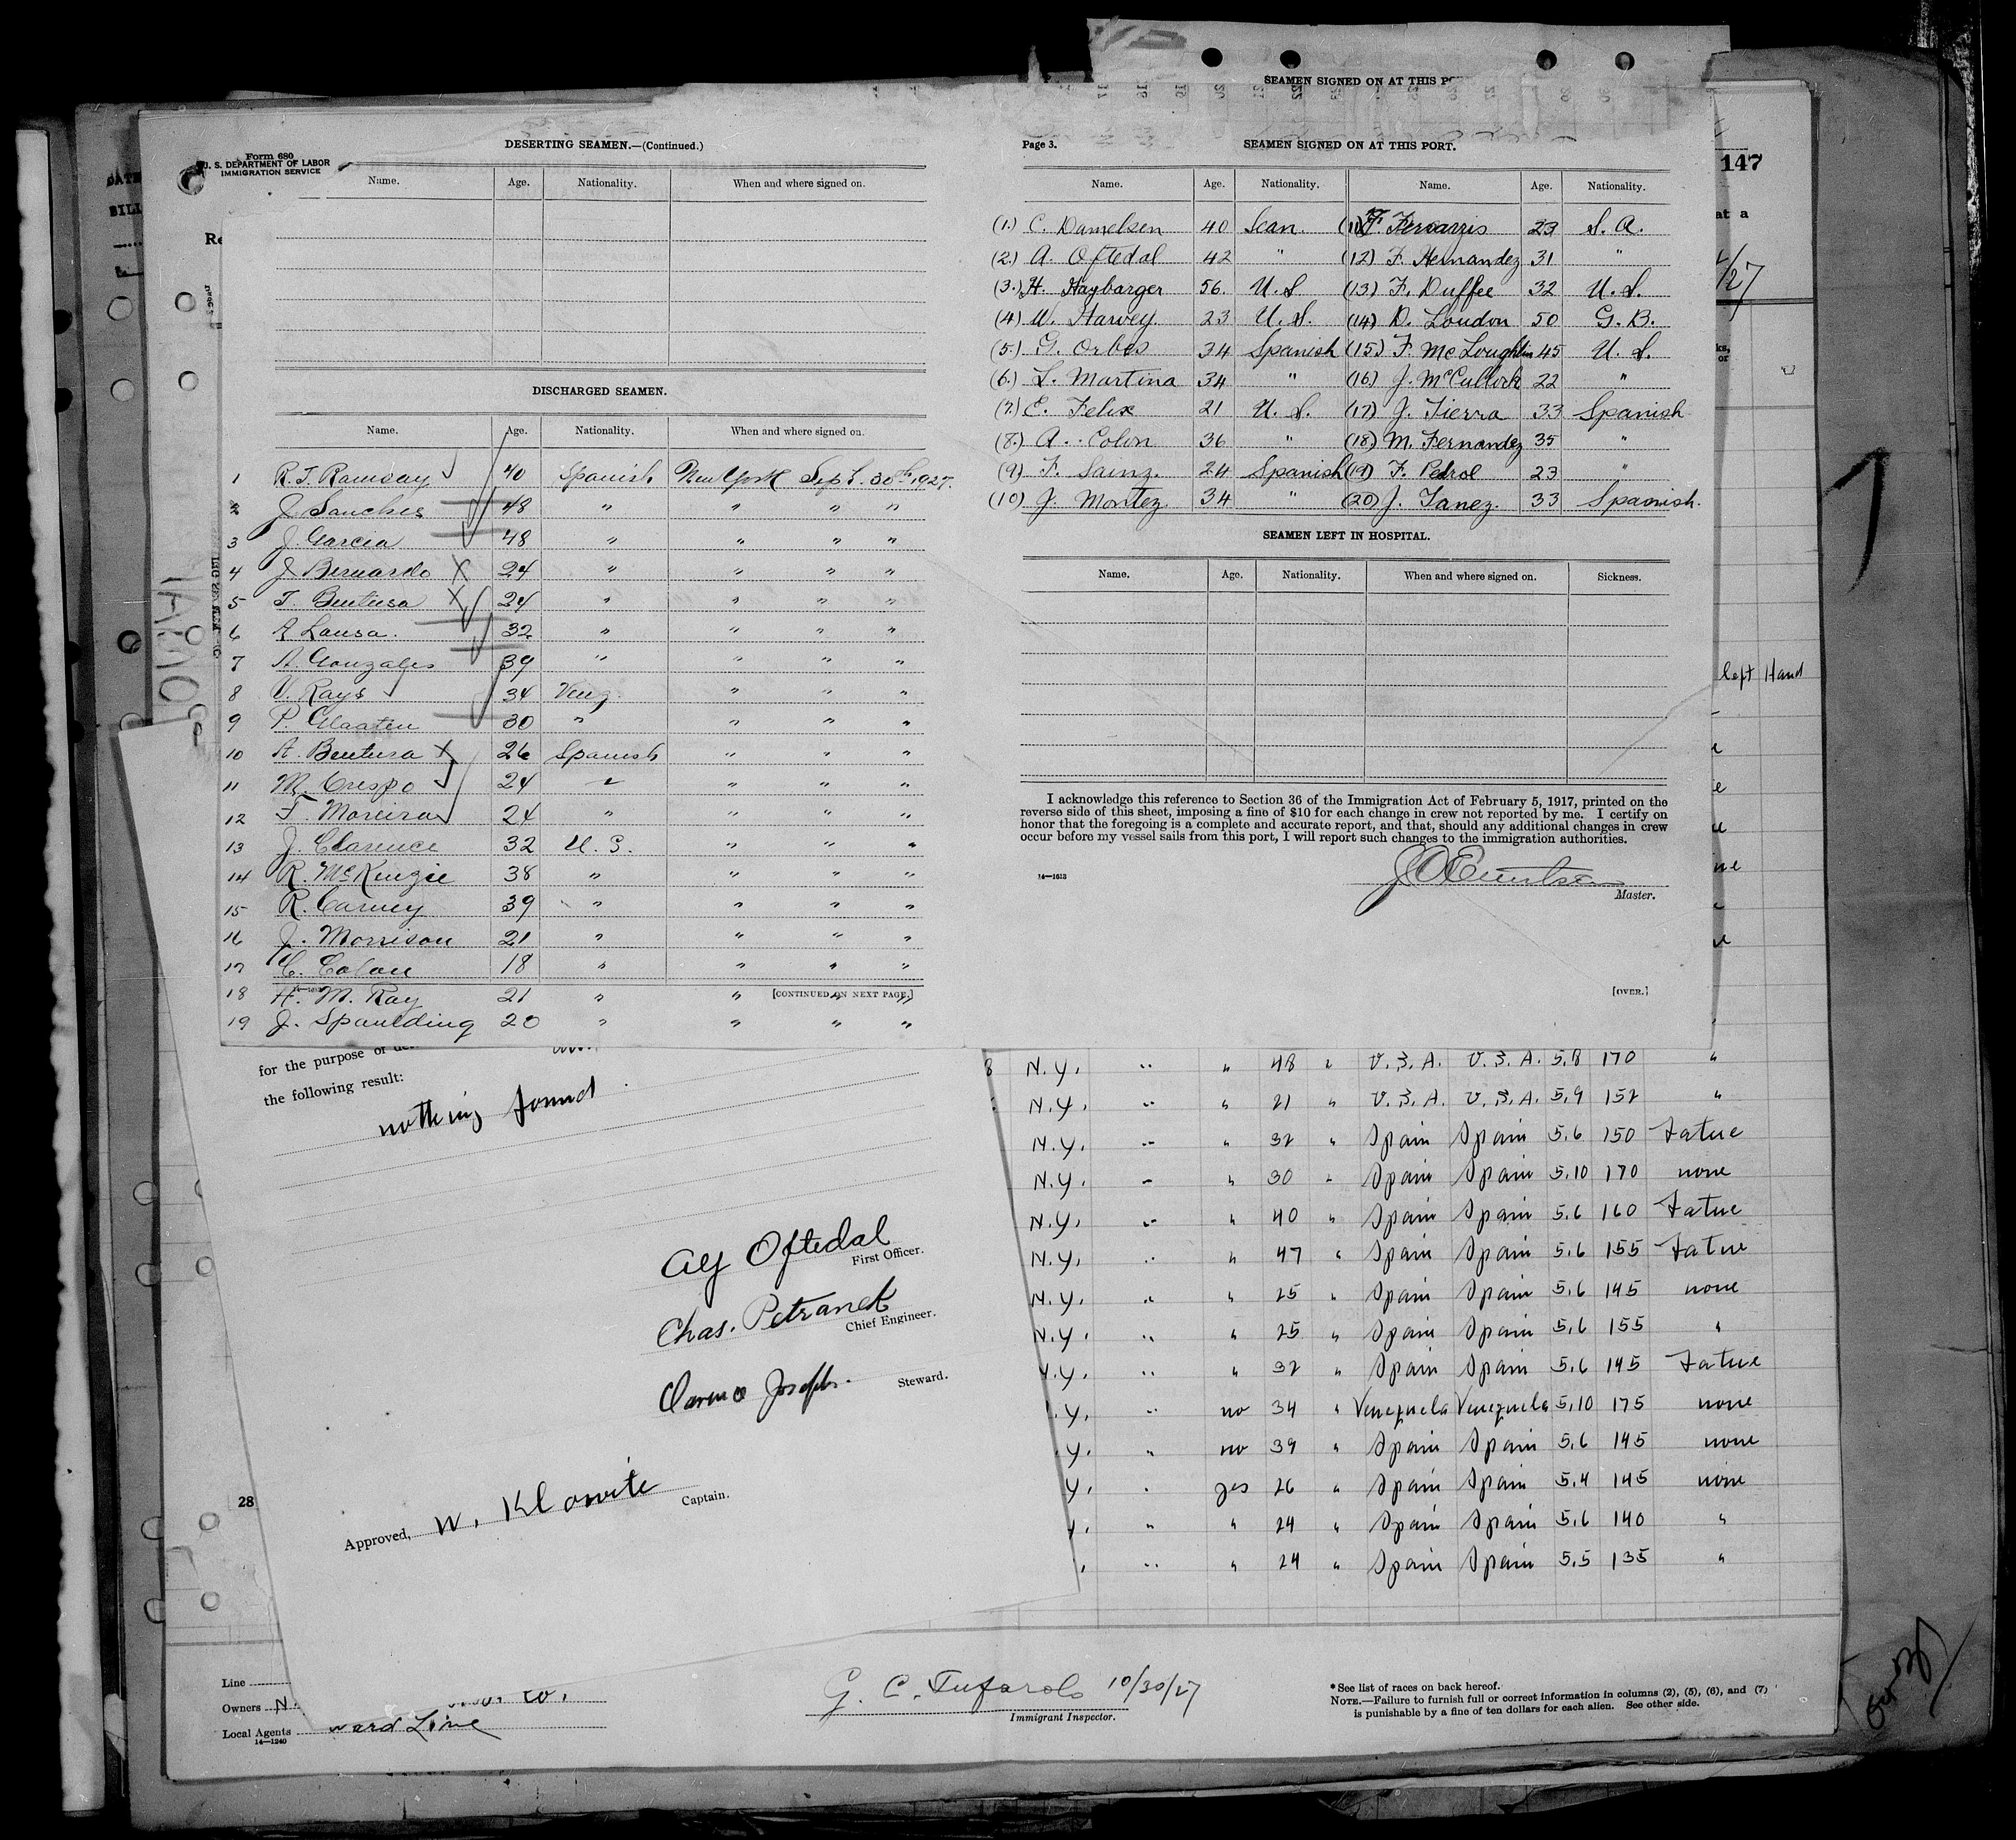 SEAMEN SIGNED ON AT THIS
Form 680
U. S. DEPARTMENT OF LABOR
IMMIGRATION SERVICE
DESERTING SEAMEN.—(Continued.)
Name. Age. Nationality. When and where signed on.
DISCHARGED SEAMEN.
Name. Age. Nationality. When and where signed on.
1 R. J. Ramsay 40 Spanish New York Sept. 30th 1927.
2 J. Sanches 48 " " " "
3 J. Garcia 48 " " " "
4 J. Bernardo X 24 " " " "
5 T. X 24 " " " "
6 A Lausa. 32 " " " "
7 A. Gonzales 39 " " " "
8 V. Rays 34 Venz. " " "
9 P. 30 " " " "
10 A. Bentura X 26 Spanish " " "
11 M. Crespo 24 " " " "
12 F. Moreira 24 " " " "
13 J. Clarence 32 U. S. " " "
14 R. McKenzie 38 " " " "
15 R. Carney 39 " " " "
16 J. Morrison 21 " " " "
17 C. Colon 18 " " " "
18 H. M. Ray 21 " " " "
[CONTINUED ON NEXT PAGE.]
19 J. Spaulding 20 " " " "
Page 3.
SEAMEN SIGNED ON AT THIS PORT.
Name. Age. Nationality. Name. Age. Nationality.
(1.) C. Danielsen 40 Scan. (11) F. 23 S. A.
(2.) A. Oftedal 42 " (12) F. Hernandez 31 "
(3.) H. Haybarger 56. U. S (13) F. Duffee 32 U. S.
(4) W. Harvey. 23 U. S. (14) D. Loudon 50 G. B.
(5.) G. Orbes 34 Spanish (15.) F. McLoughlin 45 U. S.
(6.) L. Martina 34 " (16.) J. McCullock 22 "
(7.) E. Felix 21 U. S. (17) J. Tierra 33 Spanish
(8.) A. Colon 36 " (18) M. Fernandez 35 "
(9) F. Sainz. 24 Spanish (19) F. Pedrol 23 "
(10) J. Montez 34 " (20) J. Ianez. 33 Spanish.
SEAMEN LEFT IN HOSPITAL.
Name. Age. Nationality. When and where signed on. Sickness.
I acknowledge this reference to Section 36 of the Immigration Act of February 5, 1917, printed on the
reverse side of this sheet, imposing a fine of $10 for each change in crew not reported by me. I certify on
honor that the foregoing is a complete and accurate report, and that, should any additional changes in crew
occur before my vessel sails from this port, I will report such changes to the immigration authorities.
14—1613
Master.
[OVER.]
147
at a
/27
left Hand
for the purpose of
the following result:
nothing found
Alf Oftedal
First Officer.
Chas. Petranek
Chief Engineer.
Clarence Joseph.
Steward.
Approved, W. Captain.
28
8 N.Y. " " 48 " U.S.A. U.S.A. 5.8 170 "
N.Y. " " 21 " U.S.A. U.S.A. 5.9 152 "
N.Y. " " 32 " Spain Spain 5.6 150 Tatue
N.Y. " " 30 " Spain Spain 5.10 170 none
N.Y. " " 40 " Spain Spain 5.6 160 Tatue
N.Y. " " 47 " Spain Spain 5.6 155 Tatue
N.Y. " " 25 " Spain Spain 5.6 145 none
N.Y. " " 25 " Spain Spain 5.6 155 "
Y. " " 32 " Spain Spain 5.6 145 Tatue
Y. " no 34 " Venezuela Venezuela 5.10 175 none
Y. " no 39 " Spain Spain 5.6 145 none
Y. " yes 26 " Spain Spain 5.4 145 none
" " 24 " Spain Spain 5.6 140 "
" " 24 " Spain Spain 5.5 135 "
Line
Owners N. Co.
Local Agents Ward Line
14—1240
G. C. Tufarolo 10/30/27
Immigrant Inspector.
* See list of races on back hereof.
NOTE.—Failure to furnish full or correct information in columns (2), (5), (6), and (7)
is punishable by a fine of ten dollars for each alien. See other side.